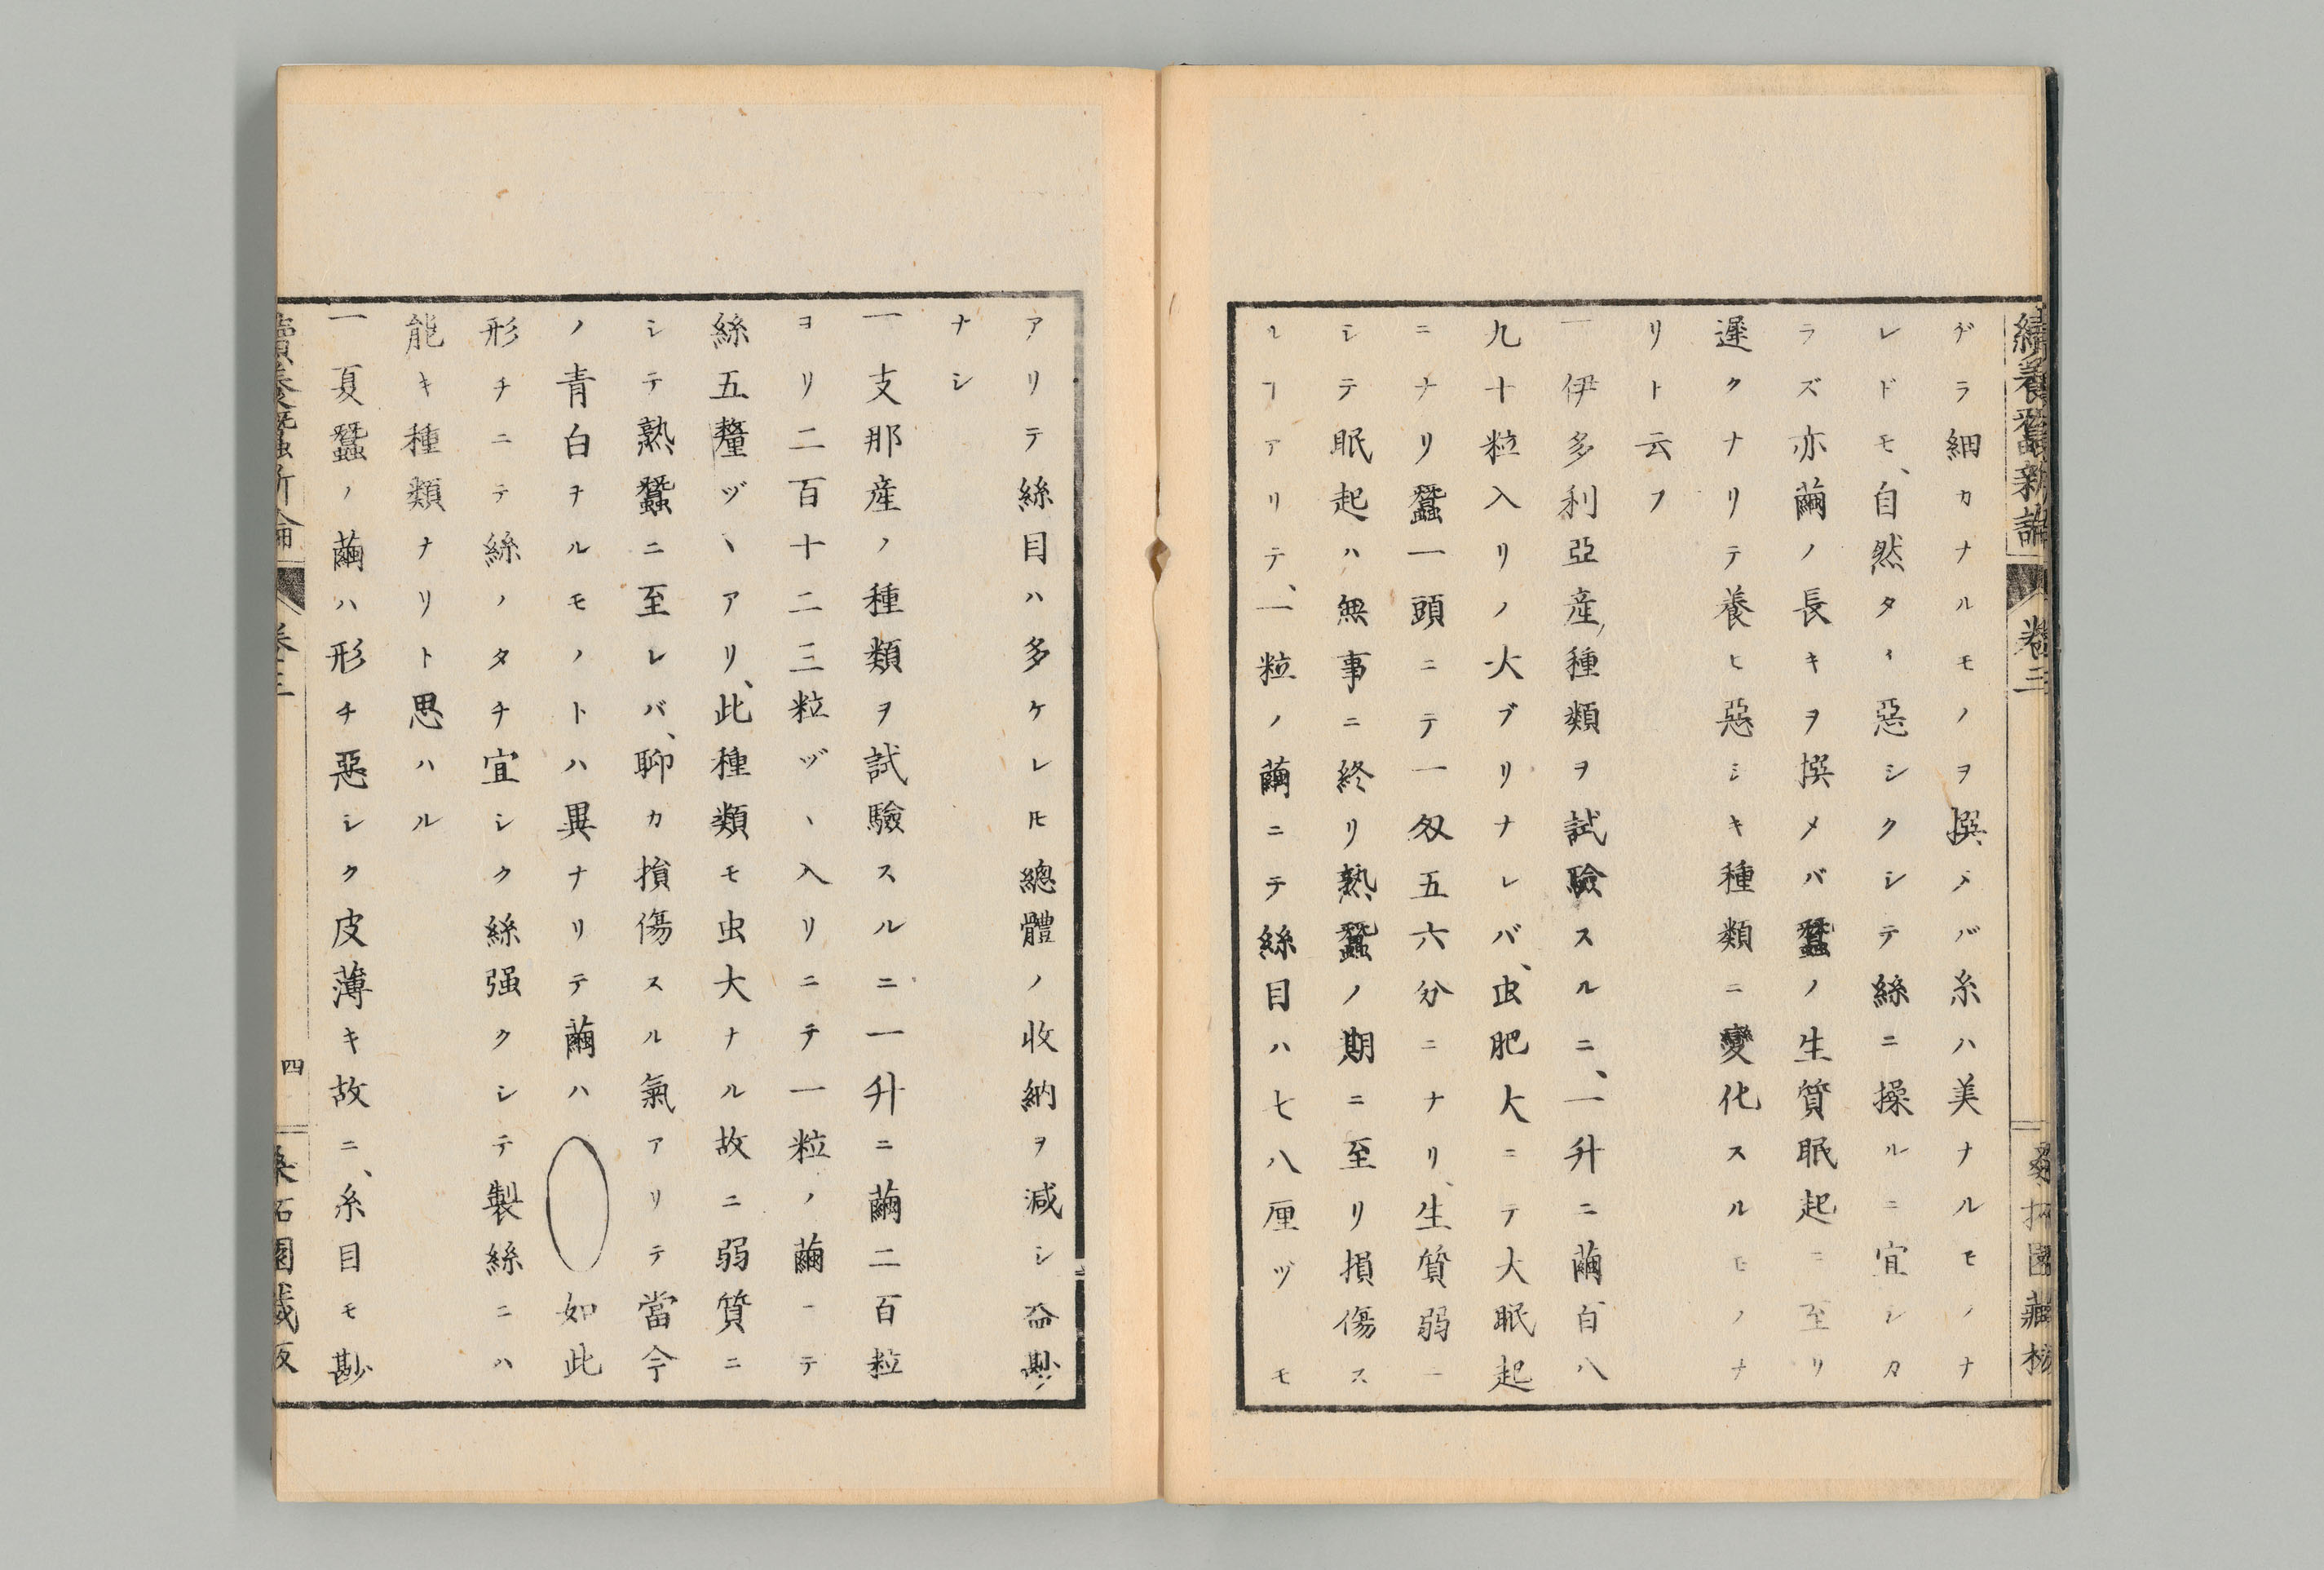 續養蠶新論 卷三 桑拓園藏板
ゲラ細カナルモノヲ撰メバ糸ハ美ナルモノナ
レドモ、自然タイ惡シクシテ絲ニ操ルニ宜シカ
ラズ亦繭ノ長キヲ撰メバ蠶ノ生質眠起ニ至リ
遲クナリテ養ヒ惡シキ種類ニ變化スルモノナ
リト云フ
一伊多利亞産ノ種類ヲ試驗スルニ、一升ニ繭百八
九十粒入リノ大ブリナレバ、虫肥大ニテ大眠起
ニナリ蠶一頭ニテ一匁五六分ニナリ、生質弱ー
シテ眠起ハ無事ニ終リ熟蠶ノ期ニ至リ損傷ス
ルヿアリテ、一粒ノ繭ニテ絲目ハ七八厘ヅモ
アリテ絲目ハ多ケレ𪜈總體ノ收納ヲ減シ益尠
ナシ
一支那産ノ種類ヲ試驗スルニ一升ニ繭二百粒
ヨリ二百十二三粒ヅヽ入リニテ一粒ノ繭ーテ
絲五釐ヅヽアリ、此種類モ虫大ナル故ニ弱質ニ
シテ熟蠶ニ至レバ、聊カ損傷スル氣アリテ當今
ノ青白ヲルモノトハ異ナリテ繭ハ 如此
形チニテ絲ノタチ宜シク絲强クシテ製絲ニハ
能キ種類ナリト思ハル
一夏蠶ノ繭ハ形チ惡シク皮薄キ故ニ、糸目モ尠
續養蠶新論 卷三 四 桑拓園藏板